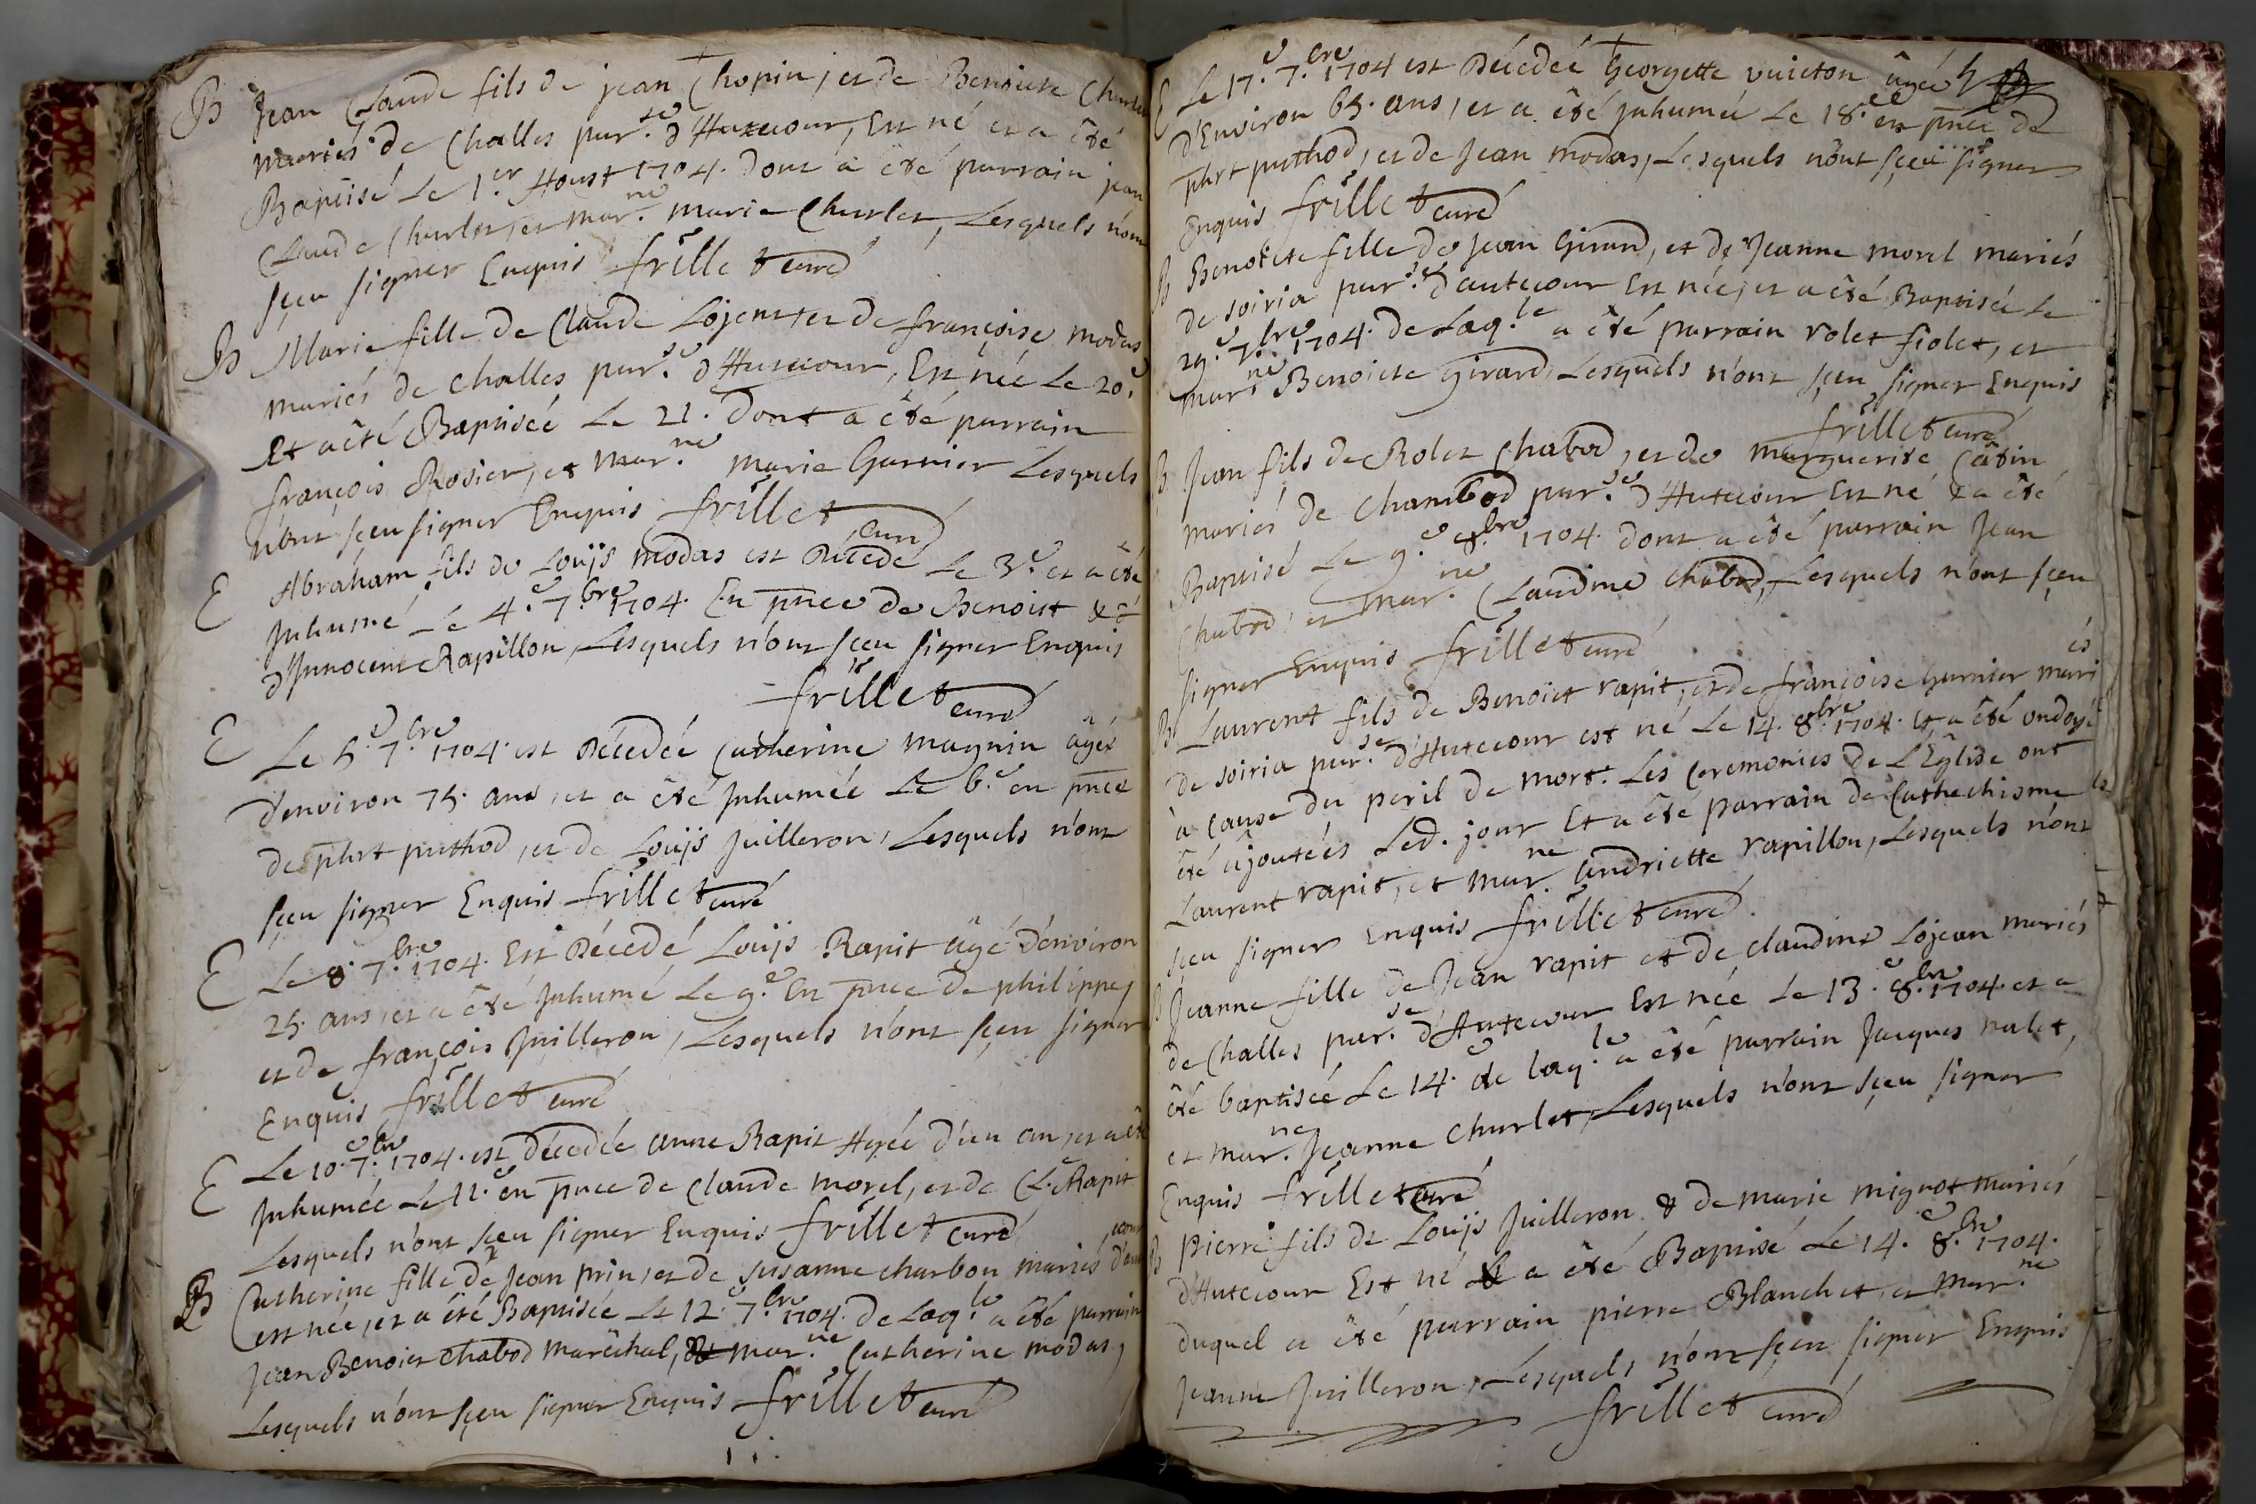 B Jean Claude fils de jean Chopin, et de Benoiete Churlet
mariés de Challes par.se d'Hautecour, Est né et a été
Baptisé Le 1.er Aoust 1704. Dont a été parrain jean
Claude Churlet, et mar.ne marie Churlet, Lesquels n'ont
sçeu signer Enquis frillet curé
B Marie fille de Claude Lojent et de françoise modas
mariés de challes par.se d'Hutecour, Est née Le 20.e
Et a été Baptisée Le 21. Dont a été parrain
françois Rosier, et mar.ne marie Garnier Lesquels
n'ont sçeu signer Enquis frillet curé
E Abraham fils de Louijs modas est Décedé Le 3.e et a été
Inhumé Le 4.e 7.bre 1704. En pnce de Benoist & 
d'Innocent Rapillon, Lesquels n'ont sçeu signer Enquis
frillet curé
E Le 5.e 7.bre 1704. est Décedée Catherine magnin âgée
d'environ 75. ans, et a été Inhumée Le 6.e en pnce
de phrt puthod, et de Louijs Juilleron, Lesquels n'ont
sçeu signer Enquis frillet curé
E Le 8. 7.bre 1704. Est Décedé Louijs Rapit âgé d'environ
25. ans, et a été Inhumé Le 9.e En pnce de philippe,
et de françois Juilleron, Lesquels n'ont sçeu signer
Enquis frillet curé
E Le 10.e 7.bre 1704. est Décedée anne Rapit Agée d'un an, et a été
Inhumée Le 11.e en pnce de Claude morel, et de Cl. Rapit
Lesquels n'ont sçeu signer Enquis frillet curé
B Catherine fille de Jean prin, et de susanne charbon mariés d'autecour
est née, et a été Baptisée Le 12.e 7.bre 1704. de Laq.le a été parrain
Jean Benoiet chabod marêchal, & mar.ne Catherine modas,
Lesquels n'ont sçeu signer Enquis frillet curé
E Le 17.e 7.bre 1704 est Décedée Georgette vuicton âgée
d'Environ 65. ans, et a été Inhumée Le 18.e en pnce de
phrt puthod, et de Jean modas, Lesquels n'ont sçeu signer
Enquis frillet curé
B Benoiete fille de Jean Girard, et de Jeanne morel mariés
de soiria par.se d'autecour Est née, et a été Baptisée Le
29.e 7.bre 1704. de Laq.le a été parrain rolet fiolet, et
mar.ne Benoiete girard, Lesquels n'ont sçeu signer Enquis
frillet curé
B Jean fils de Rolet Chabod, et de marguerite Catin
mariés de Chambod par.se d'Hutecour Est né & a été
Baptisé Le 9.e 8.bre 1704. dont a été parrain Jean
Chabod, et mar.ne Claudine chabod, Lesquels n'ont sçeu
signer Enquis frillet curé
B Laurent fils de Benoiet rapit, et de françoise Garnier mariés
de soiria par.se d'Hutecour est né Le 14. 8.bre 1704. Et a été ondoyé
à cause du peril de mort. Les Ceremonies de L'Eglise ont
été ajoutées Led. jour Et a été parrain de Cathechisme
Laurent rapit, et mar.ne andriette rapillon, Lesquels n'ont
sçeu signer Enquis frillet curé.
B Jeanne fille de Jean rapit et de claudine Lojean mariés
de Challes par.se d'Hutecour Est née Le 13.e 8.bre 1704. et a
été baptisée Le 14.e de laq.le a été parrain Jacques nalet,
et mar.ne Jeanne churlet, Lesquels n'ont sçeu signer
Enquis frillet curé
B pierre fils de Louijs Juilleron & de marie mignot mariés
d'Hutecour Est né & a été Baptisé Le 14.e 8.bre 1704.
duquel a été parrain pierre Blanchet, et mar.ne
Jeanne Juilleron, Lesquels n'ont sçeu signer Enquis
frillet curé